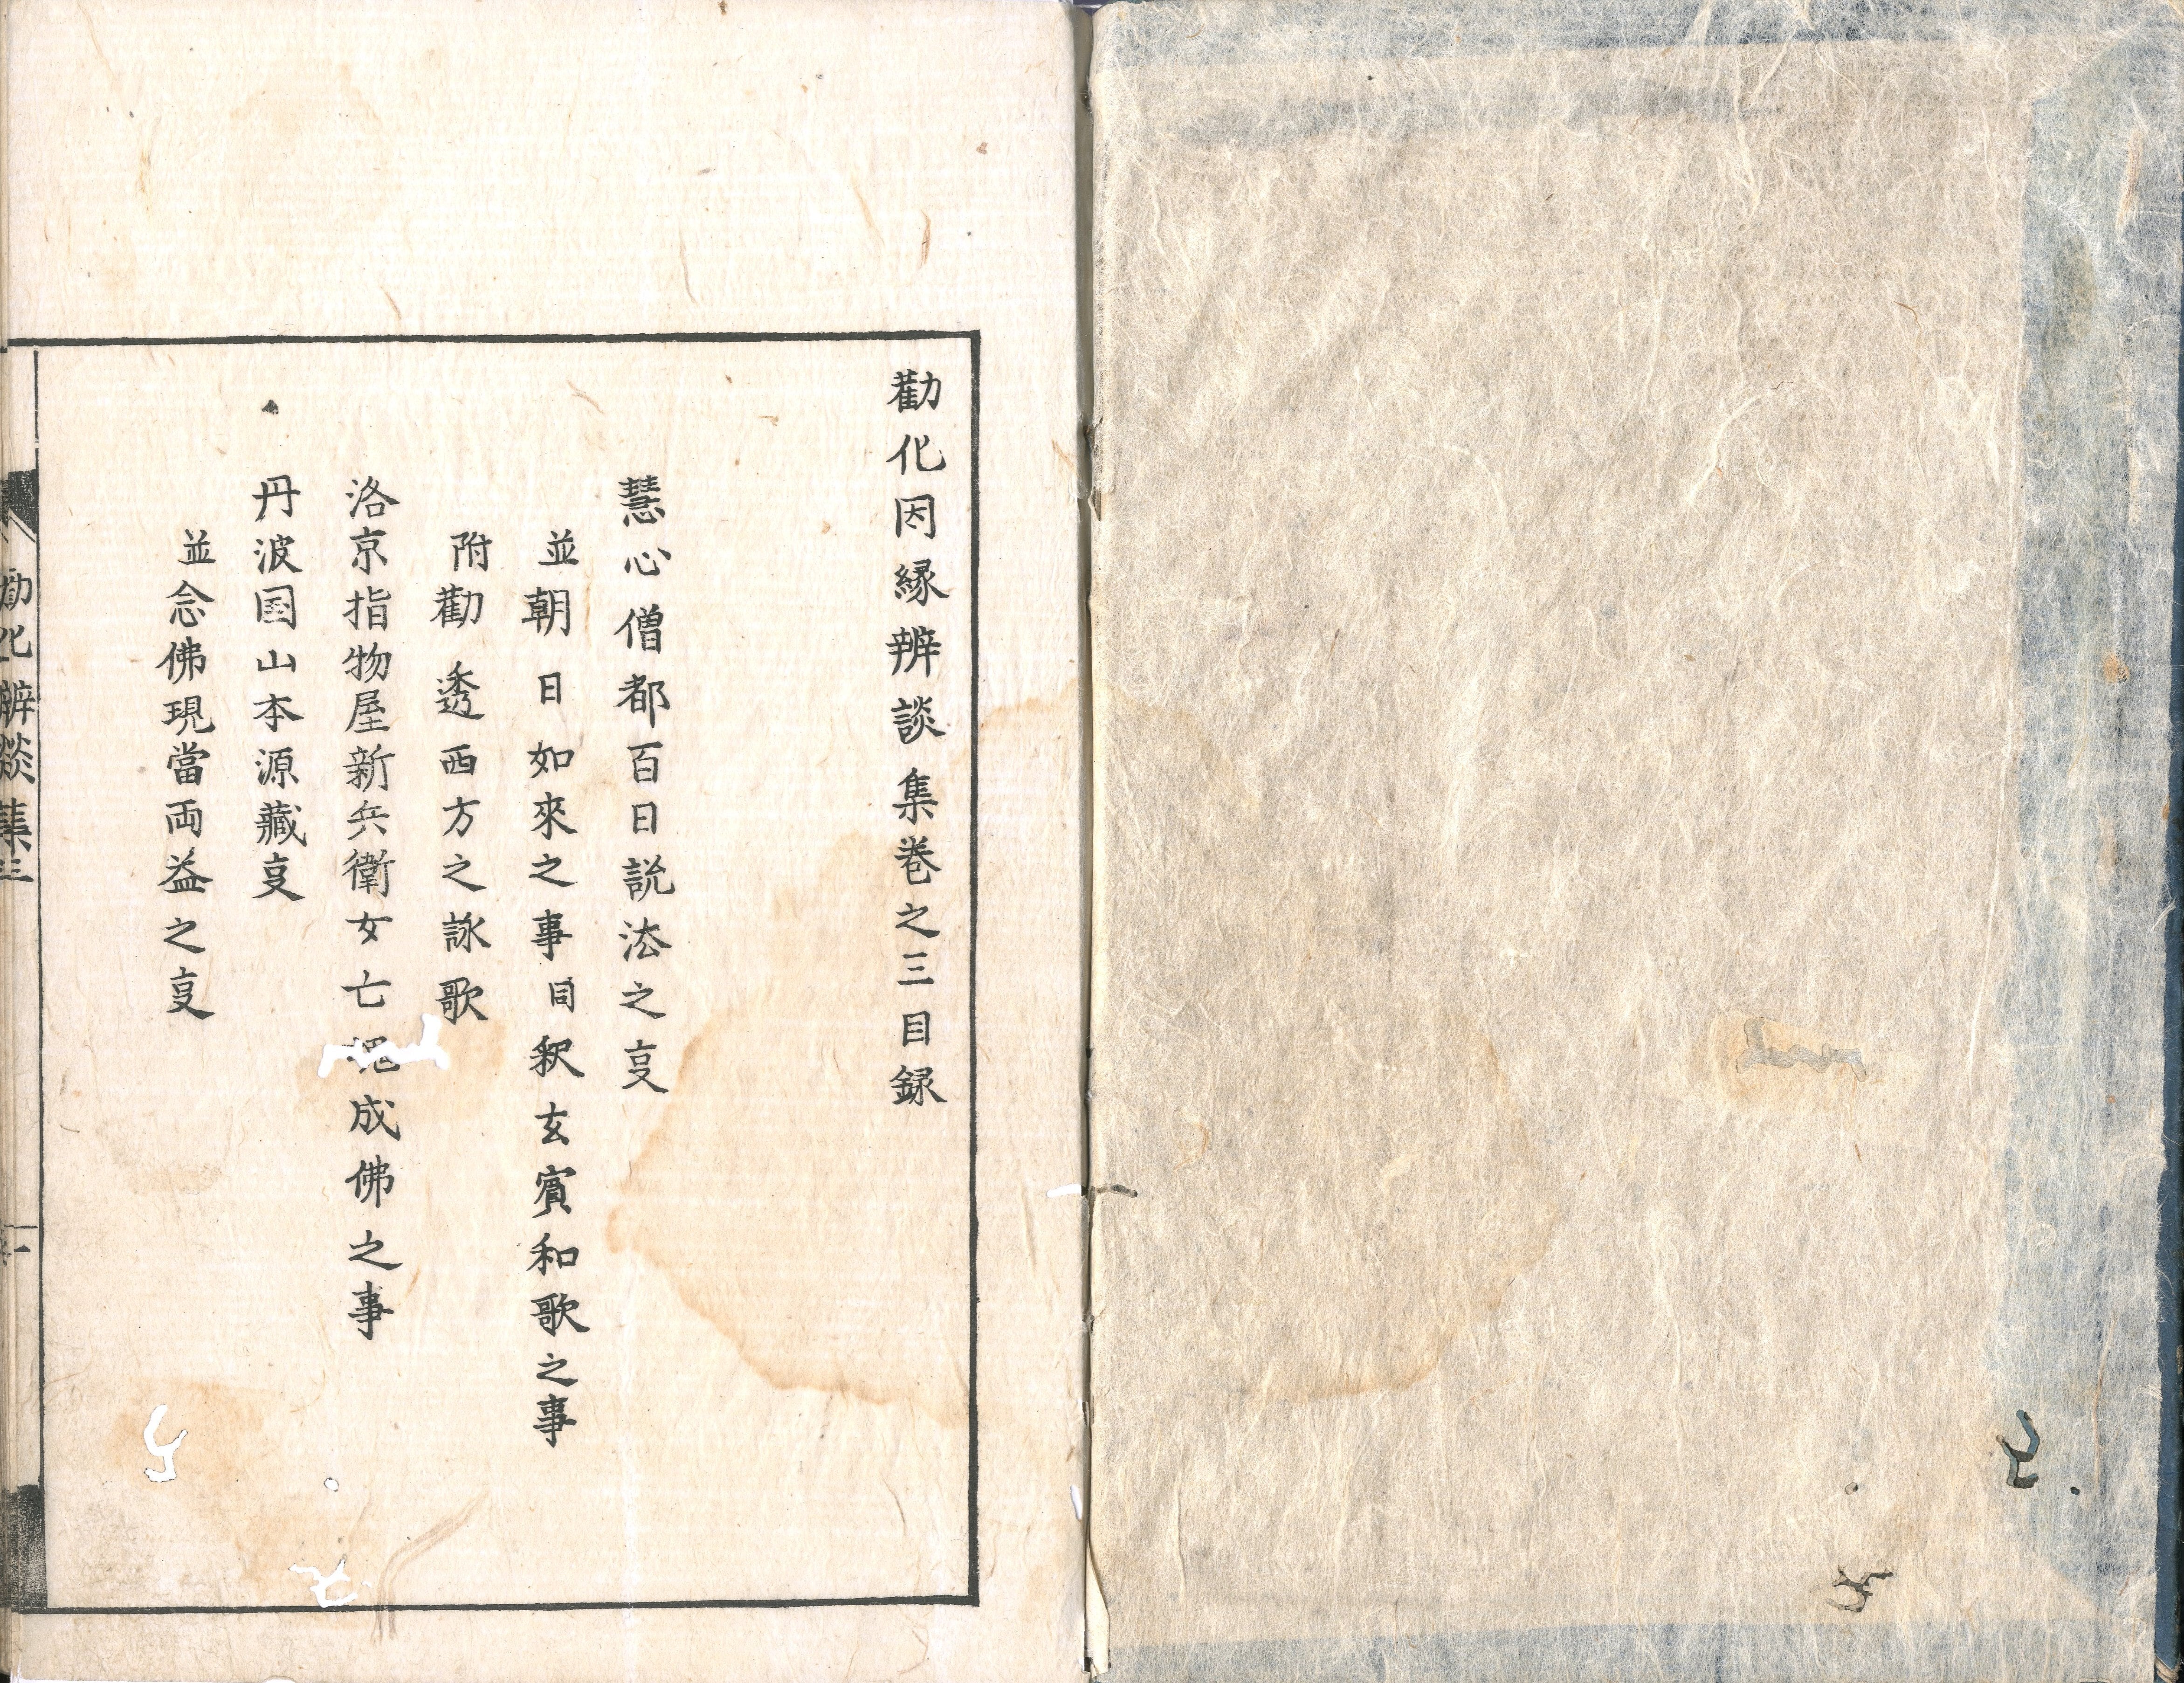 勸化因縁辨談集巻之三目録
慧心僧都百日説法之㕝
並朝日如來之事同釈玄賓和歌之事
附勸透西方之詠歌
洛京指物屋新兵衛女亡魂成佛之事
丹波国山本源藏㕝
並念佛現當両益之㕝
勸化辨談集三
一